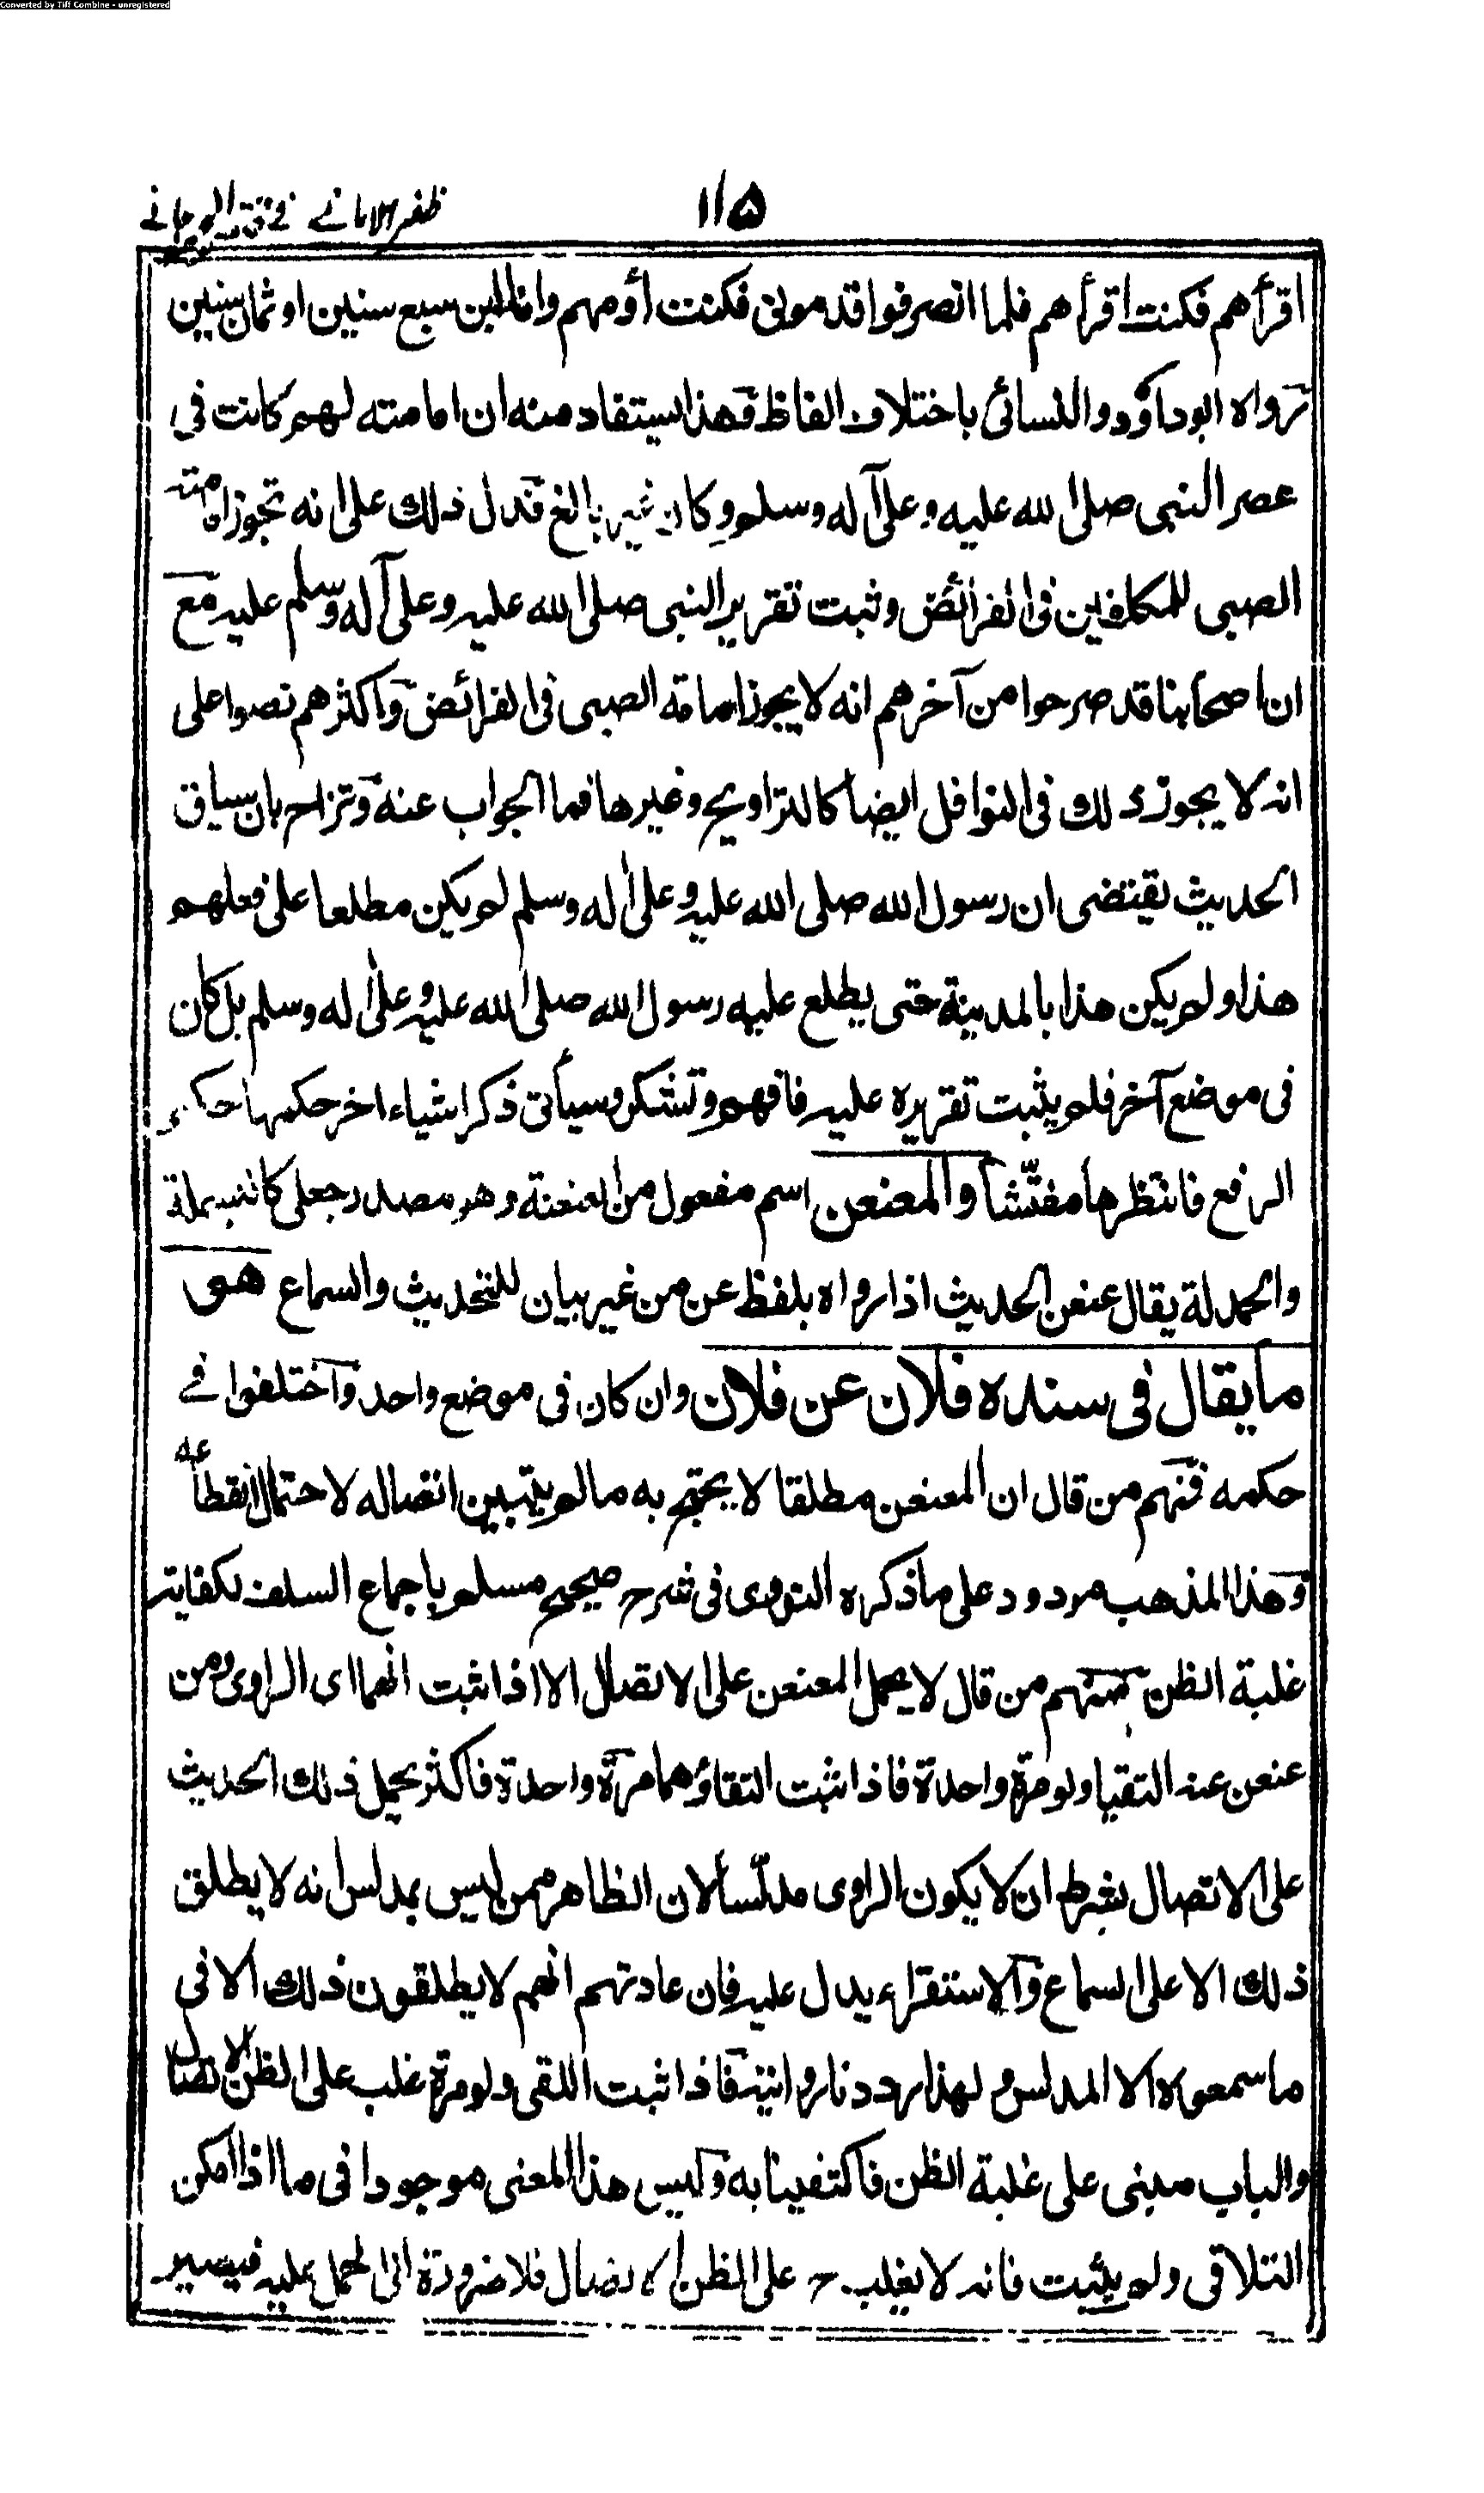 Converted by Tiff Combine - unregistered
ظفر الامانے ۱۱۵
اقرأهم فكنت اقرأهم فلما انصرفوا قدمونى فكنت أؤمهم وانا ابن سبع سنين او ثمان سنين
رواه ابوداؤد والنسائى باختلاف الفاظ فهذا يستفاد منه ان امامته لهم كانت فى
عصر النبى صلى الله عليه وعلى آله وسلم وكان غير بالغ فدل ذلك على انه تجوز امامته
الصبى للمكلفين فى الفرائض وثبت تقرير النبى صلى الله عليه وعلى آله وسلم عليه مع
ان اصحابنا قد صرحوا من آخرهم انه لا يجوز امامة الصبى فى الفرائض واكثرهم نصوا على
انه لا يجوز ذلك فى النوافل ايضا كالتراويح وغيرها فما الجواب عنه وتزاح بان سياق
الحديث يقتضى ان رسول الله صلى الله عليه وعلى اله وسلم لم يكن مطلعا على فعلهم
هذا ولم يكن هذا بالمدينة حتى يطلع عليه رسول الله صلى الله عليه وعلى اله وسلم بل كان
فى موضع آخر فلم يثبت تقريره عليه فافهم وتشكر وسيأتى ذكر اشياء اخر حكمها حكم
الرفع فانتظرها مفتشا والمعنعن اسم مفعول من العنعنة وهو مصدر جعلى كالبسملة
والحمدلة يقال عنعن الحديث اذا رواه بلفظ عن من غير بيان للتحديث والسماع هو
ما يقال فى سنده فلان عن فلان وان كان فى موضع واحد واختلفوا فے
حكمه فمنهم من قال ان المعنعن مطلقا لا يحتج به ما لم يتبين اتصاله لاحتمال انقطاعه
وهذا المذهب مردود على ما ذكره النووى فى شرح صحيح مسلم باجماع السلف لكفاية
غلبة الظن ومنهم من قال لا يحمل المعنعن على الاتصال الا اذا ثبت انهما اى الراوى ومن
عنعن عنه التقيا ولو مرة واحدة فاذا ثبت التقاؤهما مرة واحدة فاكثر يحمل ذلك الحديث
على الاتصال بشرط ان لا يكون الراوى مدلسا لان الظاهر ممن ليس بمدلس انه لا يطلق
ذلك الا على السماع والاستقراء يدل عليه فان عادتهم انهم لا يطلقون ذلك الا فى
ما سمعوه الا المدلس ولهذا رددنا روايته فاذا ثبت اللقى ولو مرة غلب على الظن الاتصال
والباب مبنى على غلبة الظن فاكتفينا به وليس هذا المعنى موجودا فى ما اذا امكن
التلاقى ولم يثبت فانه لا يغلب ح على الظن الاتصال فلا ضرورة الى الحمل عليه فيصير